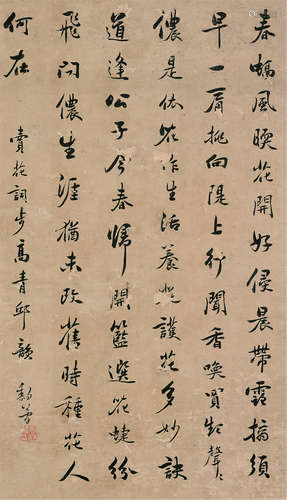 春蝸風暖花開好侵晨帶露摘須
早一肩挑向隄上行聞香喚買聲聲
儂是依花作生活養花護花多妙訣
道逢公子尋春歸開籃選花蝶紛
飛問儂生涯猶未改舊時種花人
何在
賣花詞步高青邱韻